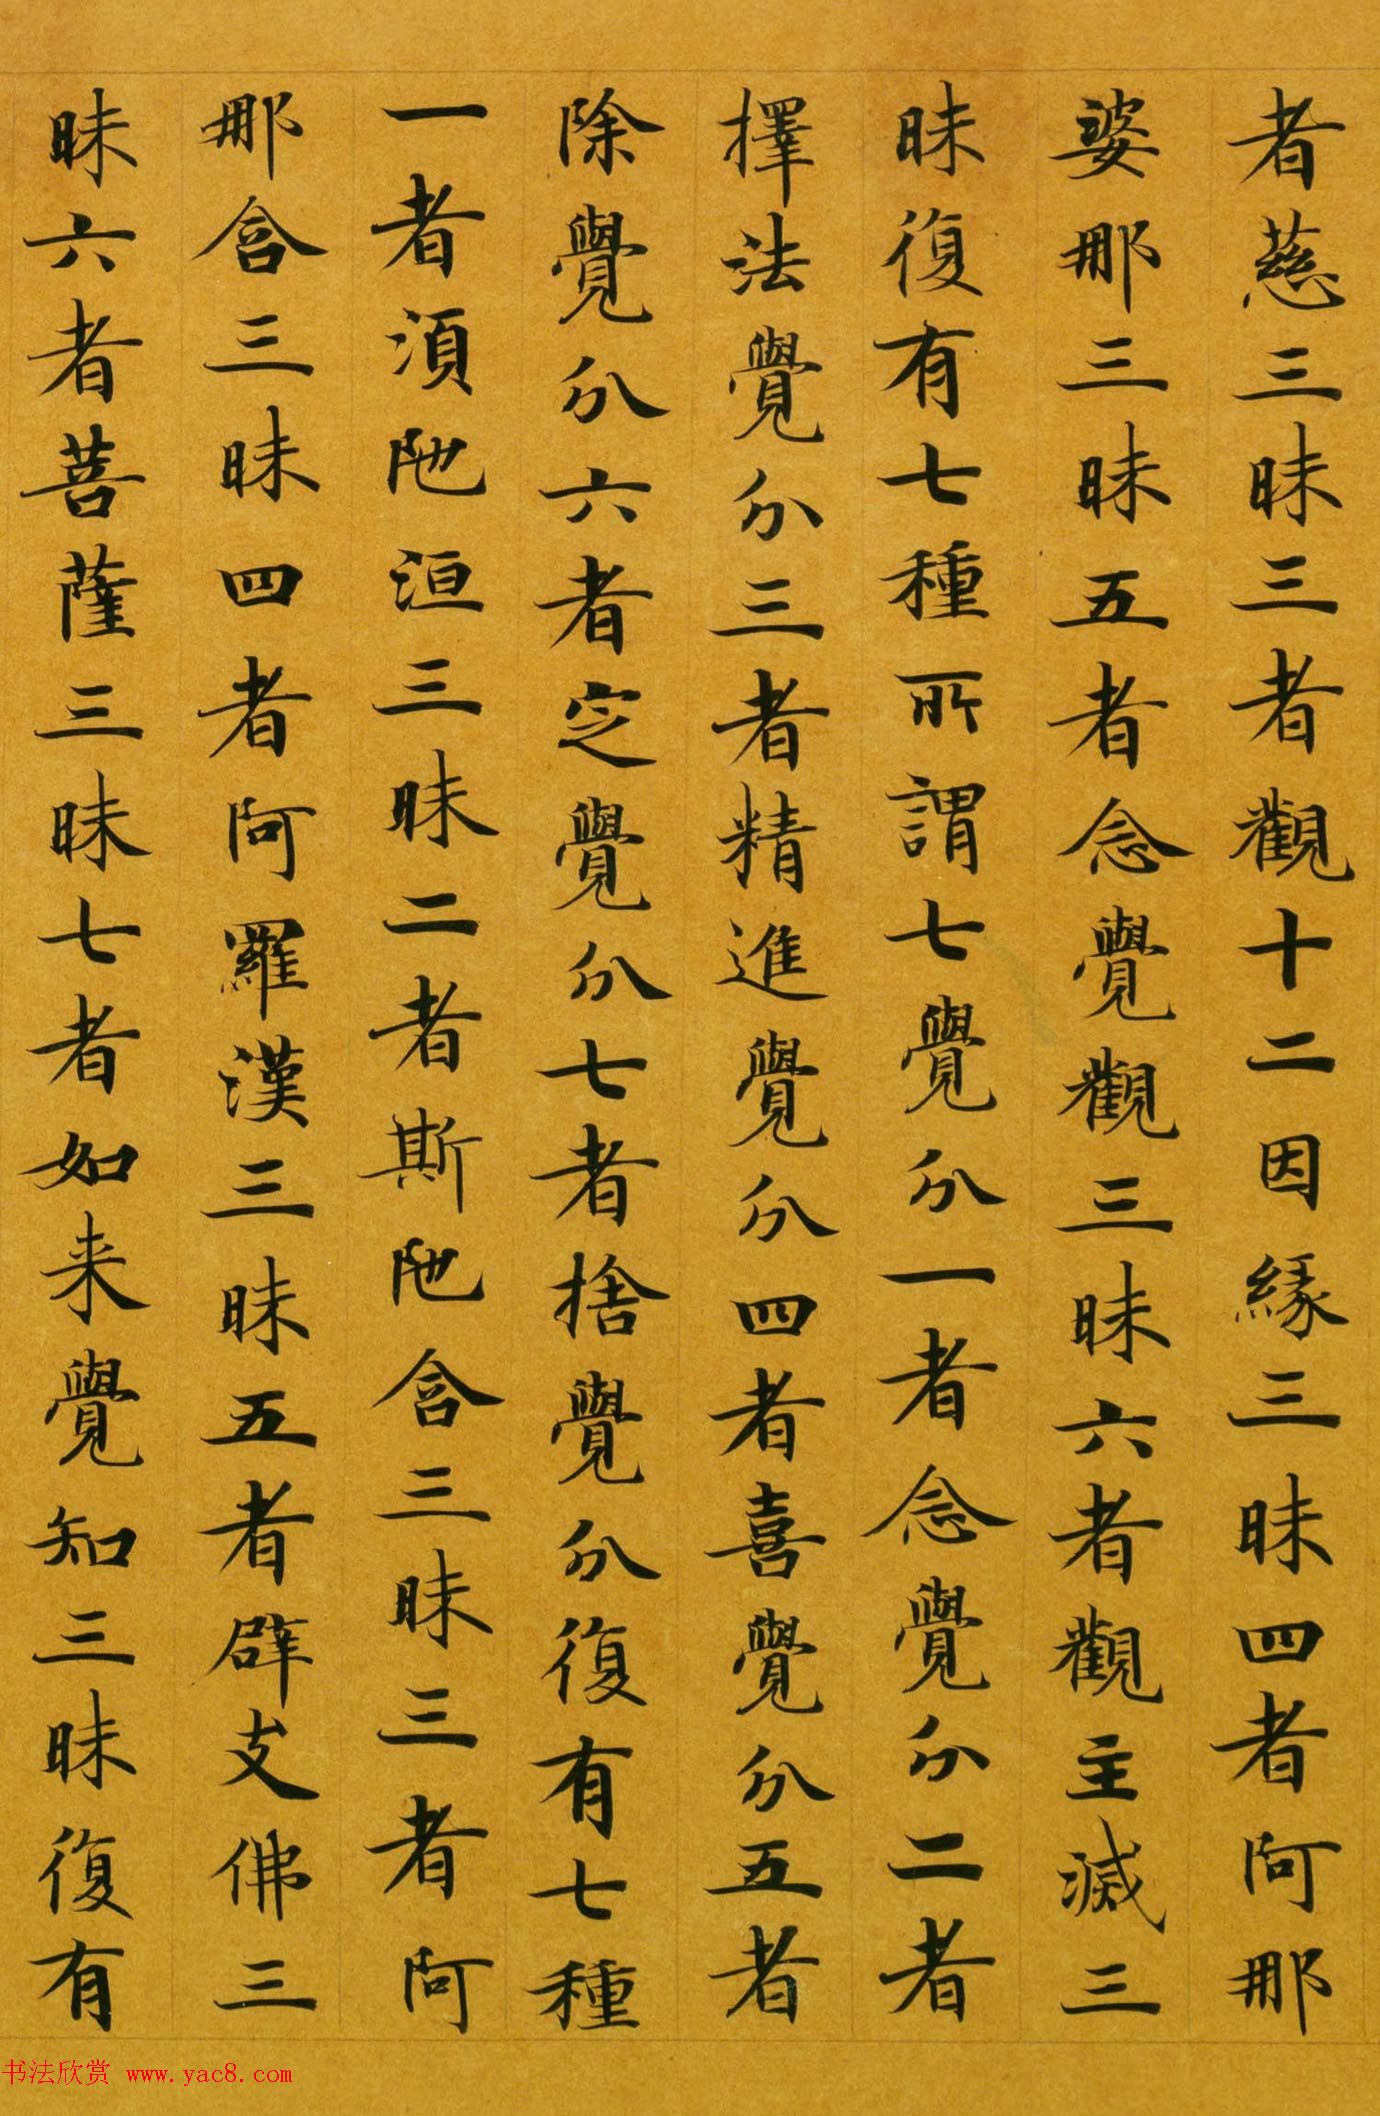 者慈三昧三者觀十二因緣三昧四者阿那
婆那三昧五者念覺觀三昧六者觀生滅三
昧復有七種所謂七覺分一者念覺分二者
擇法覺分三者精進覺分四者喜覺分五者
除覺分六者定覺分七者捨覺分復有七種
一者須陁洹三昧二者斯陁含三昧三者阿
那含三昧四者阿羅漢三昧五者辟支佛三
昧六者菩薩三昧七者如来覺知三昧復有
书法欣赏 www.yac8.com